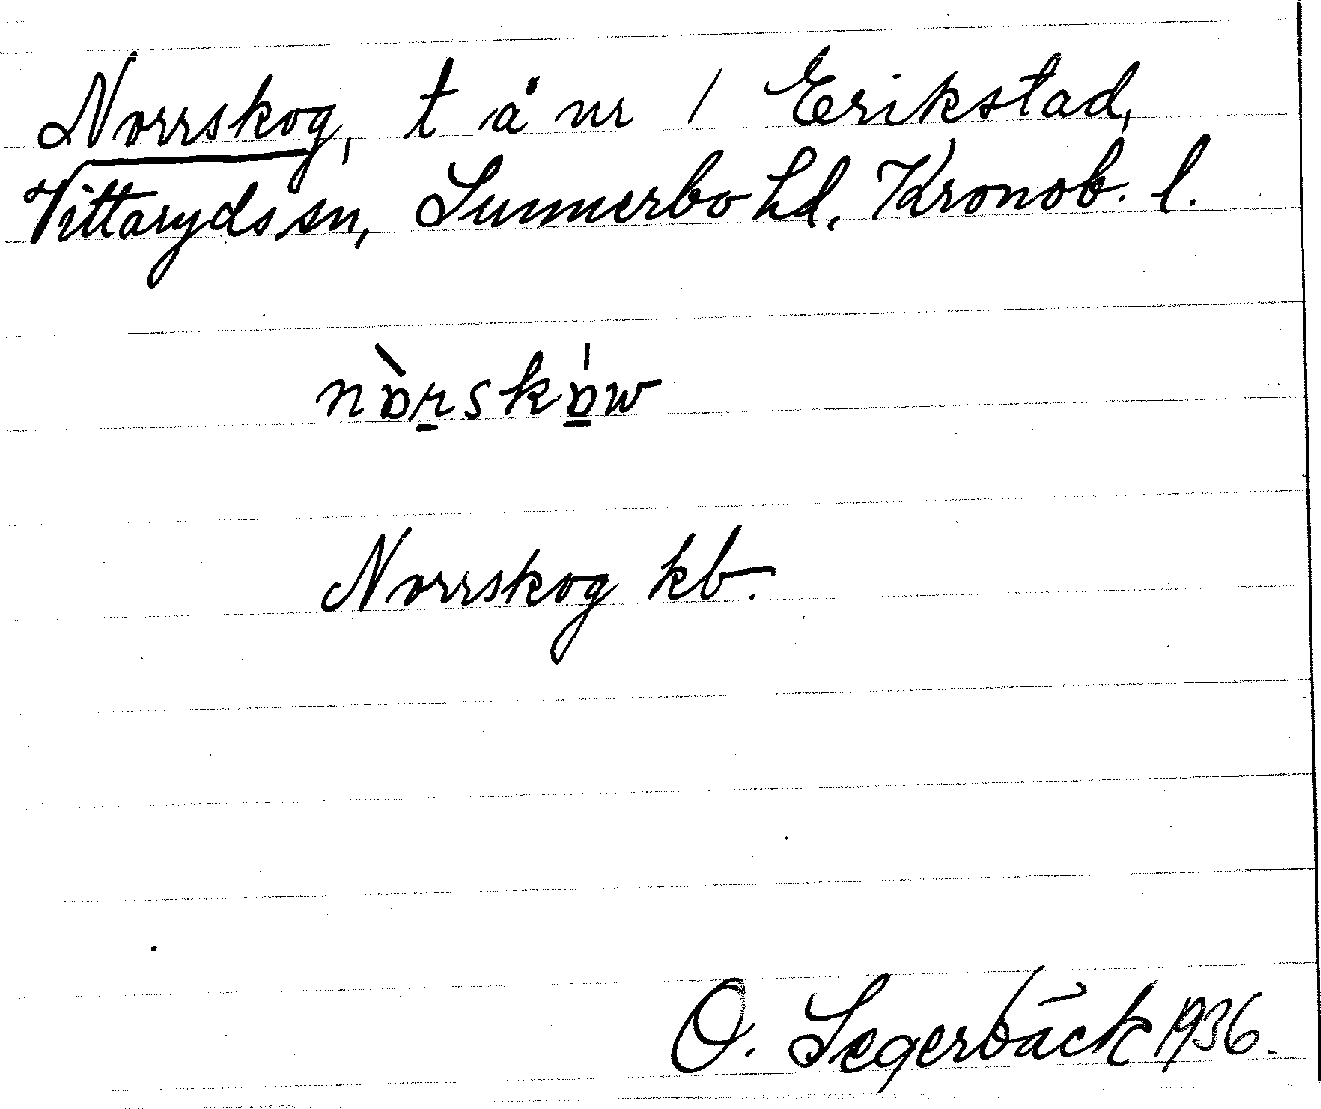 Norrskog, t å nr 1 Erikstad,
Vittaryds sn, Sunnerbo hd, Kronob. l.
nòrsków
Norrskog kb.
O. Segerbäck 1936.